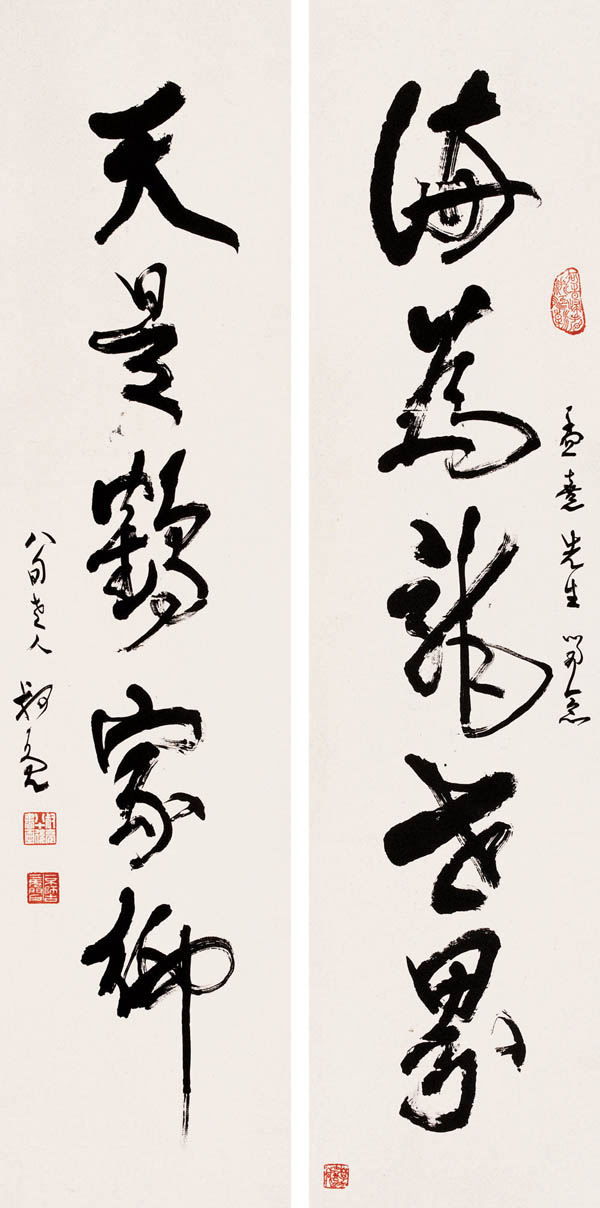 孟熹先生留念
海為龍世界
天是鶴家鄉
八旬老人